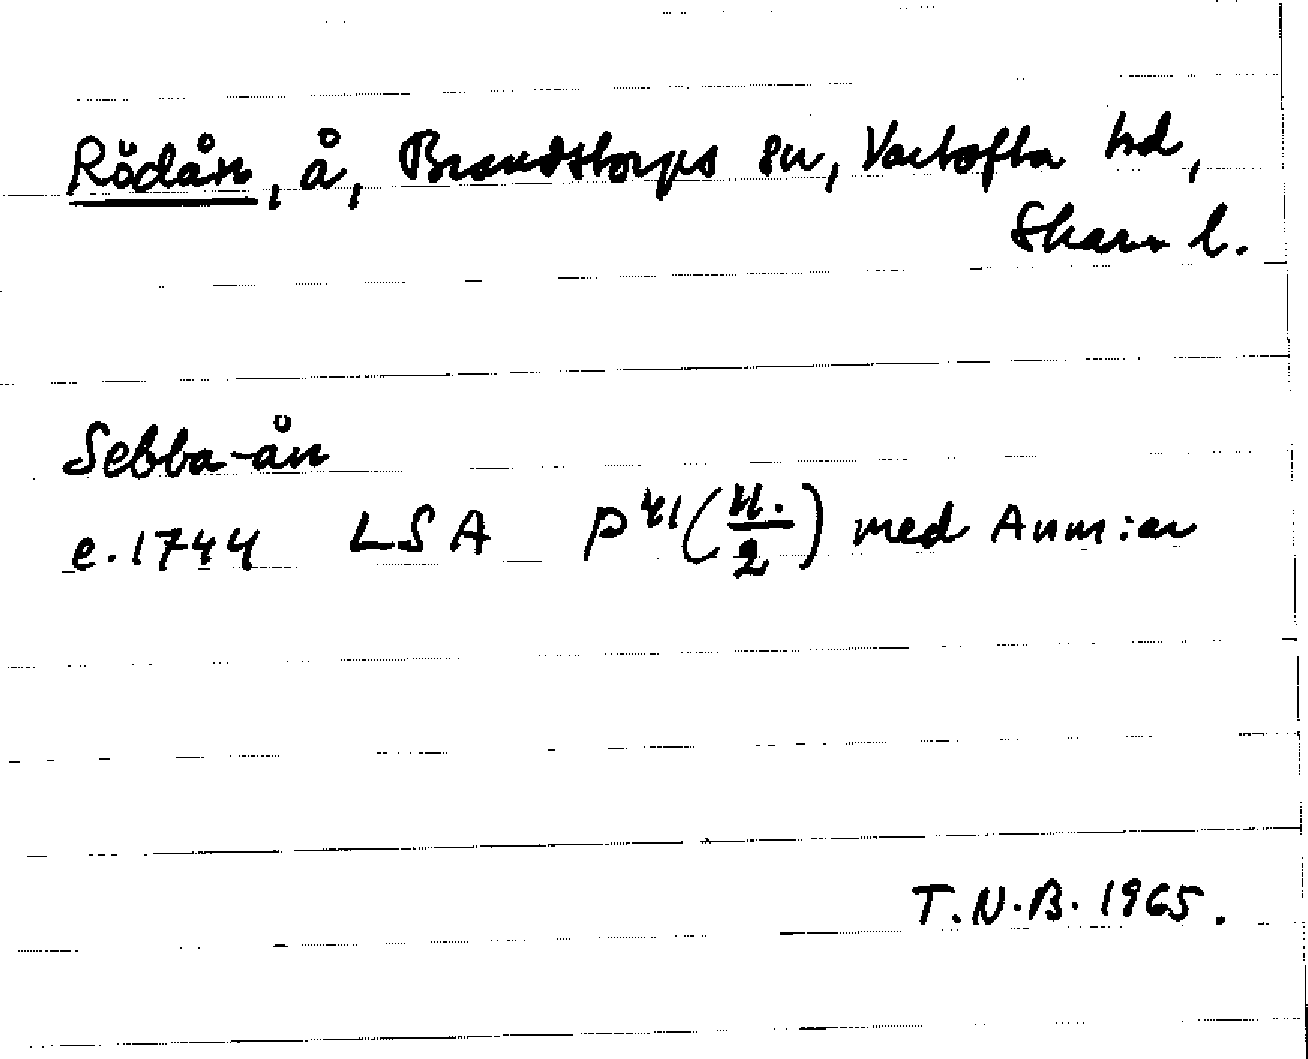 Rödån, å, Brandstorps sn, Vartofta hd,
Skar. l.
Sebba-ån
e. 1744 LSA P 41 (4./2) med Anm:er
T.N.B. 1965.